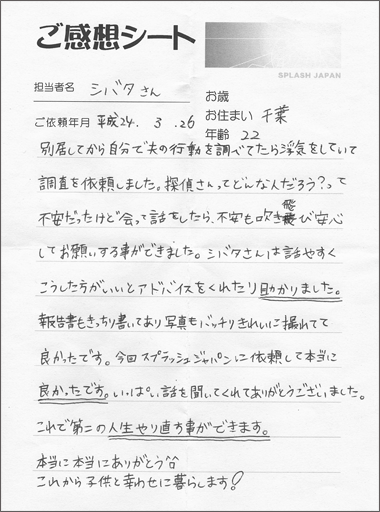 ご感想シート
SPLASH JAPAN
担当者名 シバタさん
お歳
ご依頼年月 平成24. 3. 26
お住まい 千葉
年齢 22
別居してから自分で夫の行動を調べてたら浮気をしていて
調査を依頼しました。探偵さんってどんな人だろう?って
不安だったけど会って話をしたら、不安も吹き飛び安心
してお願いする事ができました。シバタさんは話やすく
こうした方がいいとアドバイスをくれたり助かりました。
報告書もきっちり書いてあり写真もバッチリきれいに撮れてて
良かったです。今回スプラッシュジャパンに依頼して本当に
良かったです。いっぱい話を聞いてくれてありがとうございました。
これで第二の人生やり直す事ができます。
本当に本当にありがとう^^
これから子供と幸わせに暮らします!